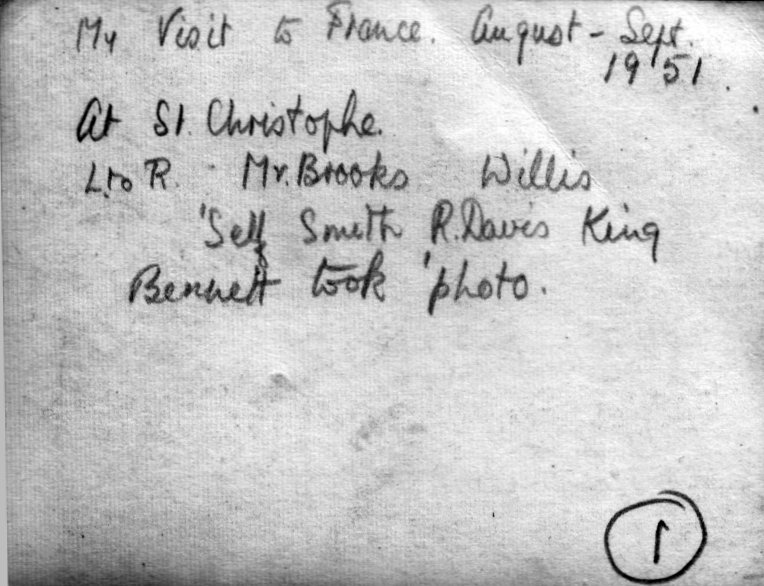 My Visit to France. August - Sept.
1951.
At St. Christophe.
L. to R. Mr. Brooks Willis
'Self Smith R. Davis King
Bennett took 'photo.
1